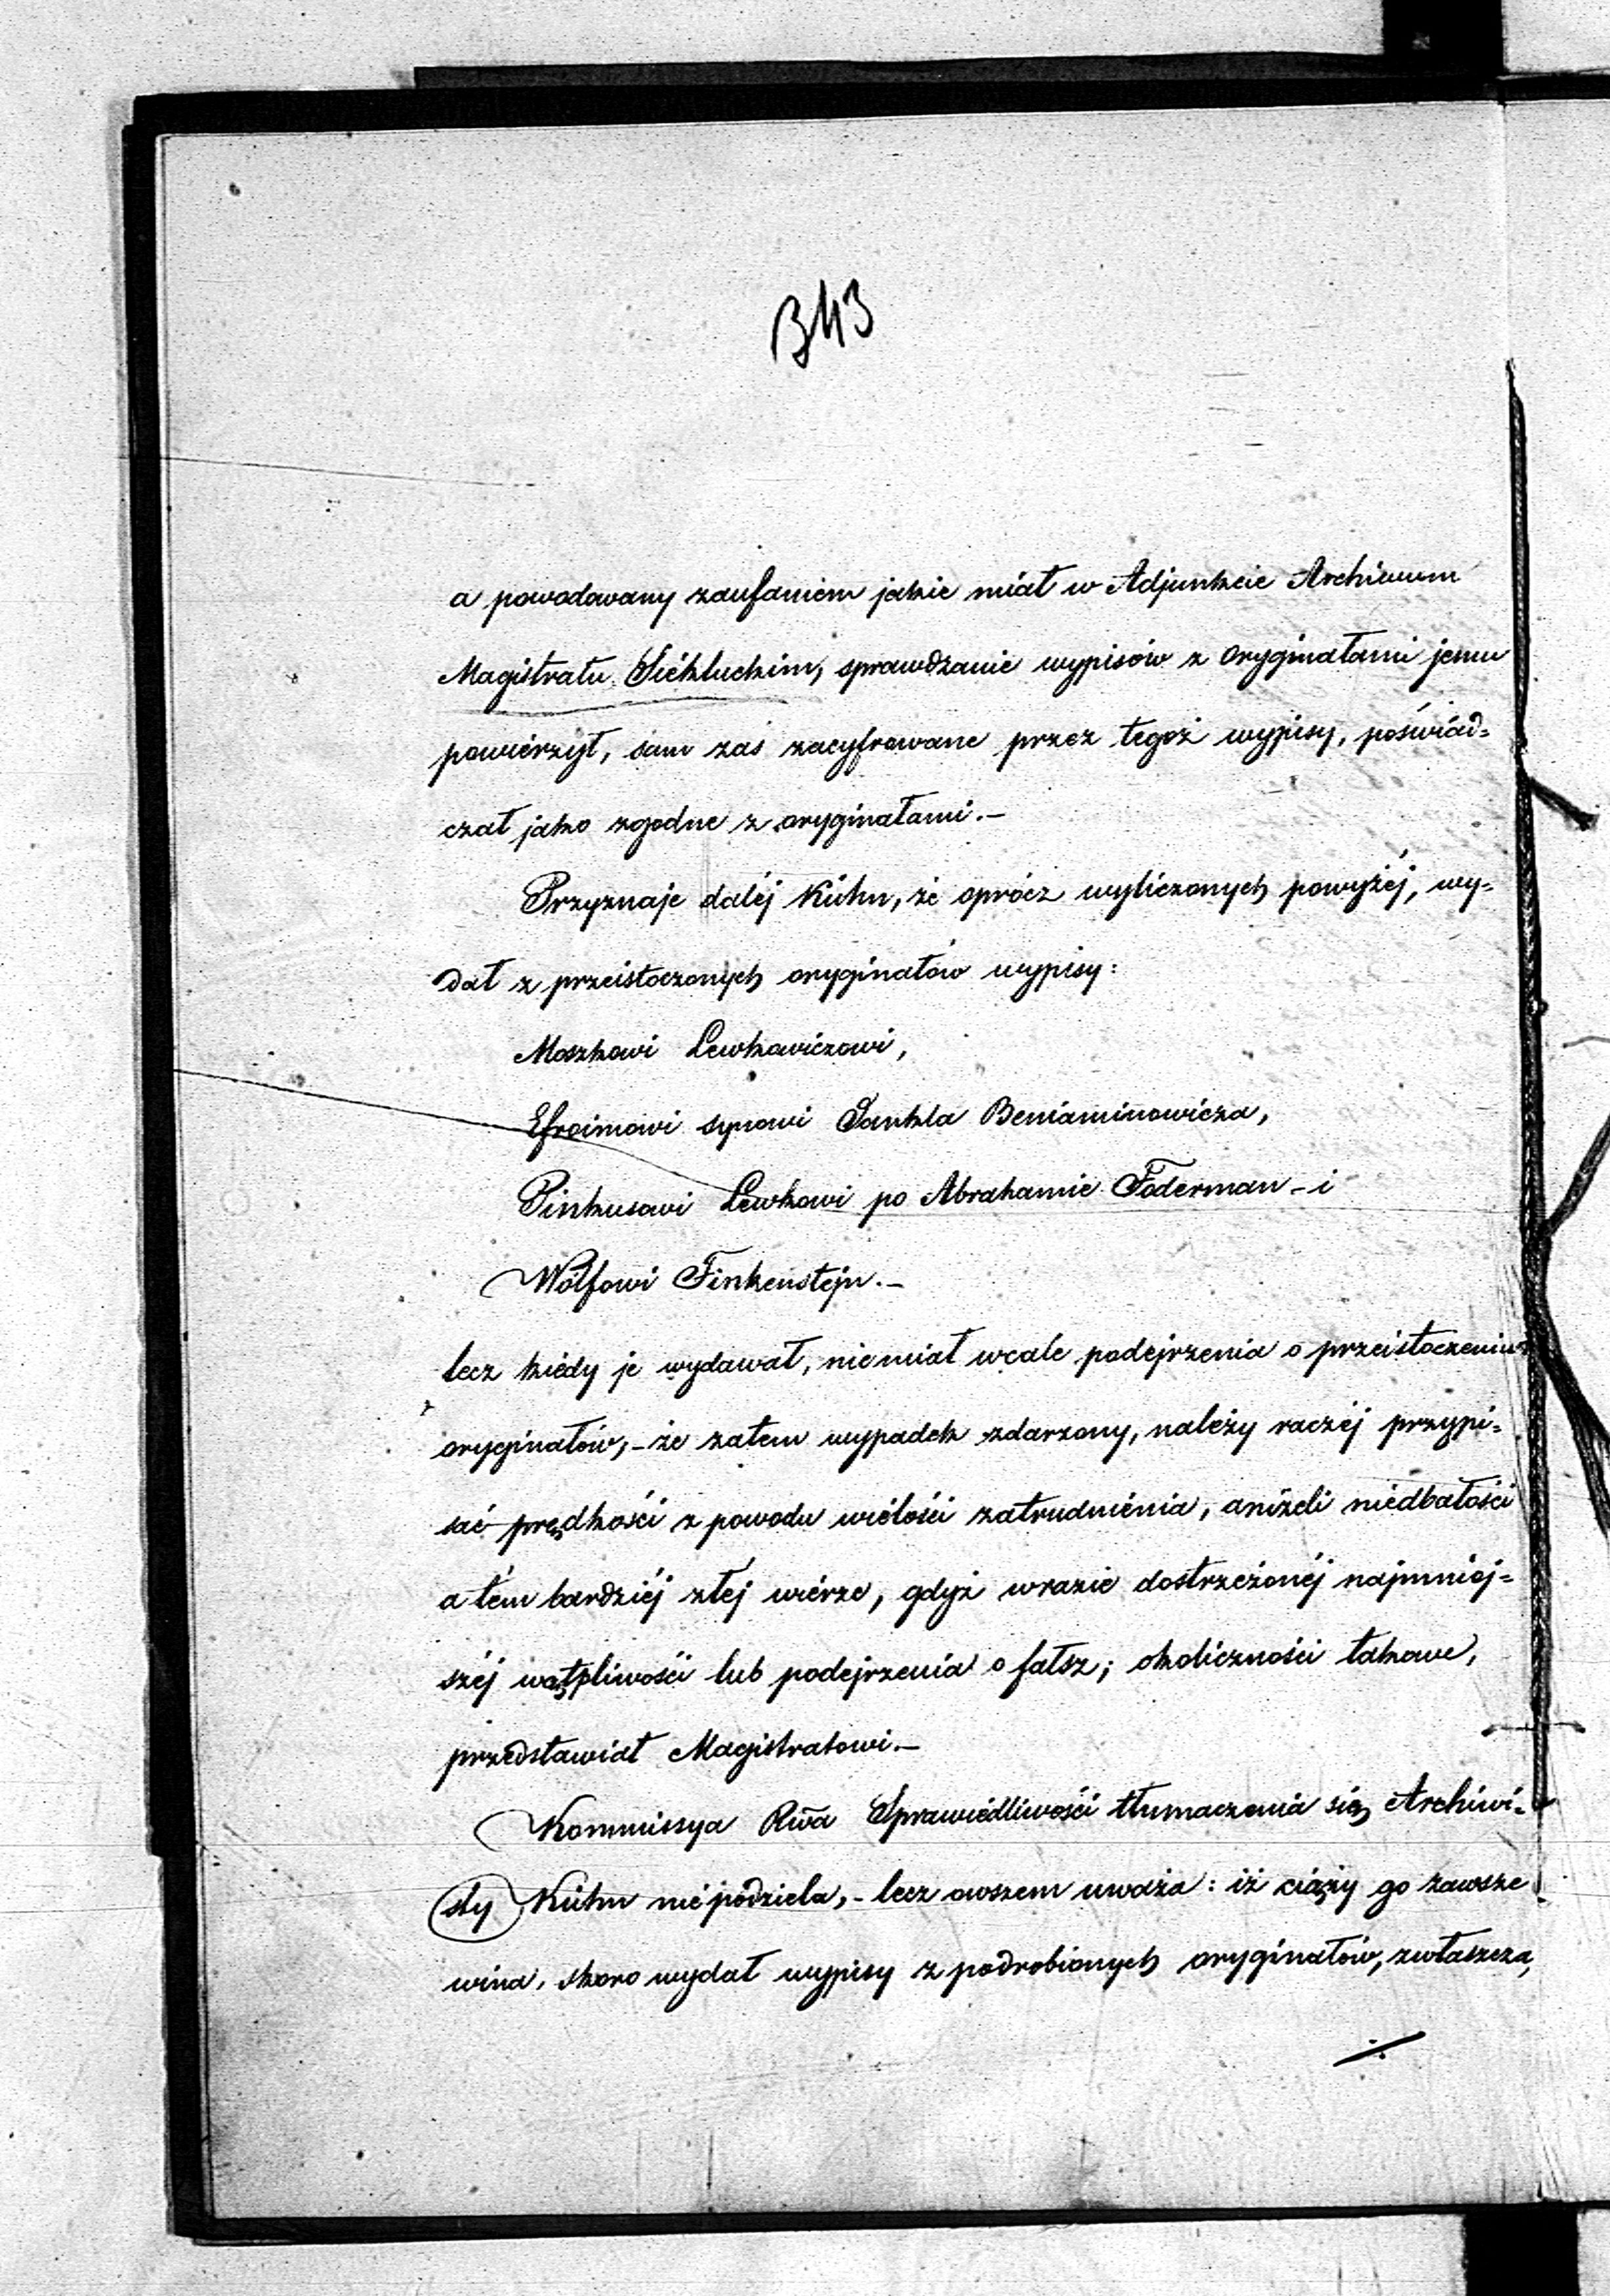 343
a powodowany zaufaniem jakie miał w Adjunkcie Archiwum
Magistratu Siékluckim, sprawdzanie wypisów z oryginałami jemu
powiérzył, sam zaś zacyfrowane przez tegoż wypisy, poświad=
czał jako zgodne z oryginałami.—
Przyznaje daléj Kühn, że oprócz wyliczonych powyżéj, wy=
dał z przeistoczonych oryginałów wypisy:
Moszkowi Lewkowiczowi,
Efroimowi synowi Jankla Beniaminowicza,
Pinkusowi Lewkowi po Abrahamie Föderman - i
Wólfowi Finkenstejn.—
lecz kiédy je wydawał, niemiał wcale podejrzenia o przeistoczeniu
oryginałów,- że zatem wypadek zdarzony, należy raczéj przypi=
sać prędkości z powodu wiélości zatrudniénia, aniżeli niédbałości
a tém bardziéj złéj wiérze, gdyż wrazie dostrzeżonéj najmniéj=
széj wątpliwości lub podejrzenia o fałsz; okoliczności takowe,
przedstawiał Magistratowi.—
Kommissya Rwa Sprawiédliwości tłumaczenia się Archiwi=
sty Kühn niépodziela,- lecz owszem uważa: iż ciąży go zawsze
wina, skoro wydał wypisy z podrobionych oryginałów, zwłaszcza,